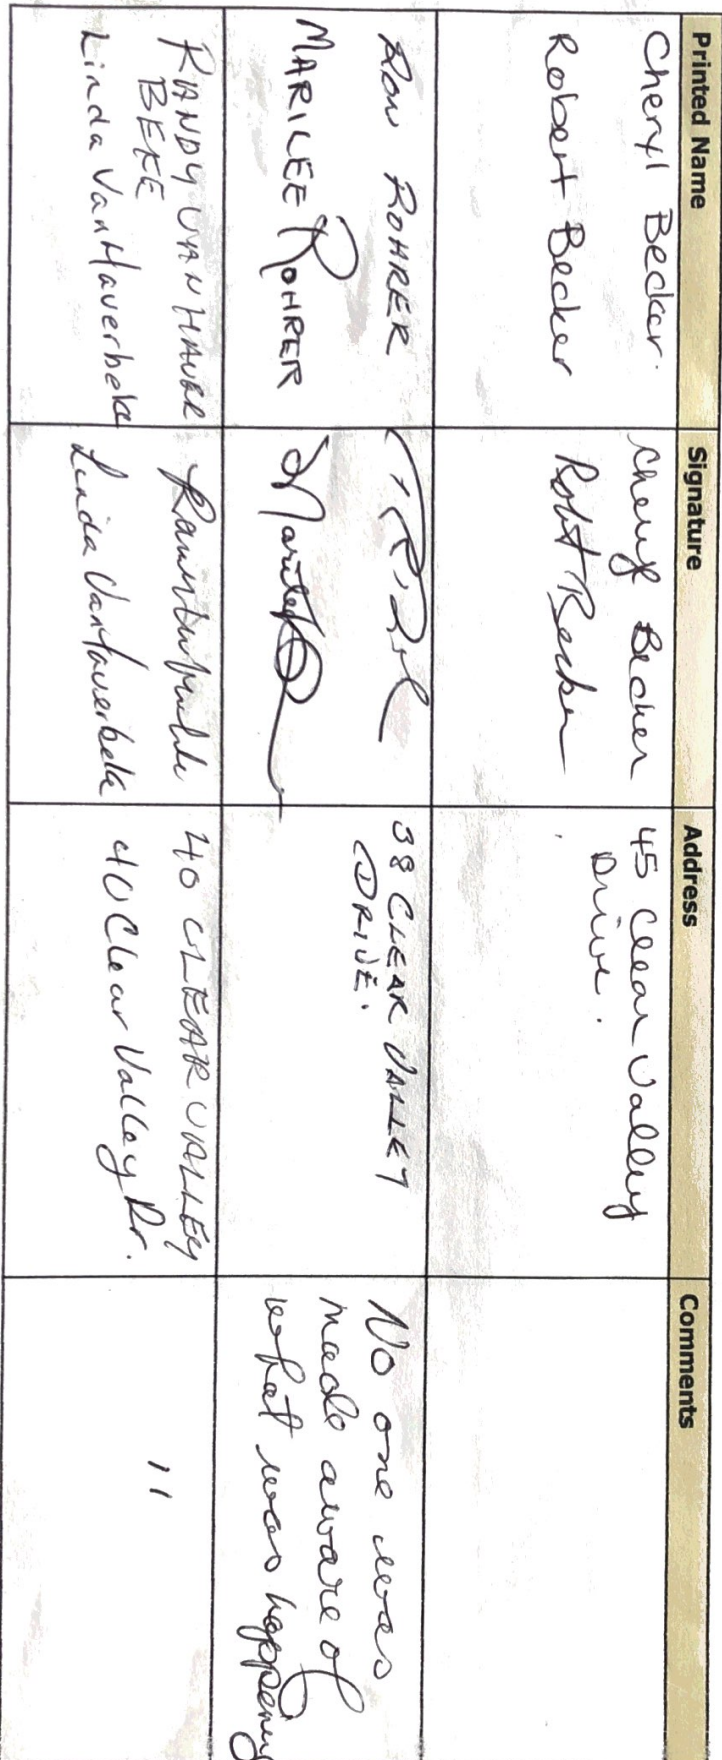 Printed Name Signature Address Comments
Cheryl Becker. Cheryl Becker 45 Clear Valley
Drive.
Robert Becker Robt Becker
Ron ROHRER 38 CLEAR VALLEY
DRIVE.
MARILEE ROHRER Marilee
No one was
made aware of
what was happening
RANDY VAN HAVER 40 CLEAR VALLEY
BEKE
Linda VanHaverbeke Linda VanHaverbeke 40 Clear Valley Dr.
"